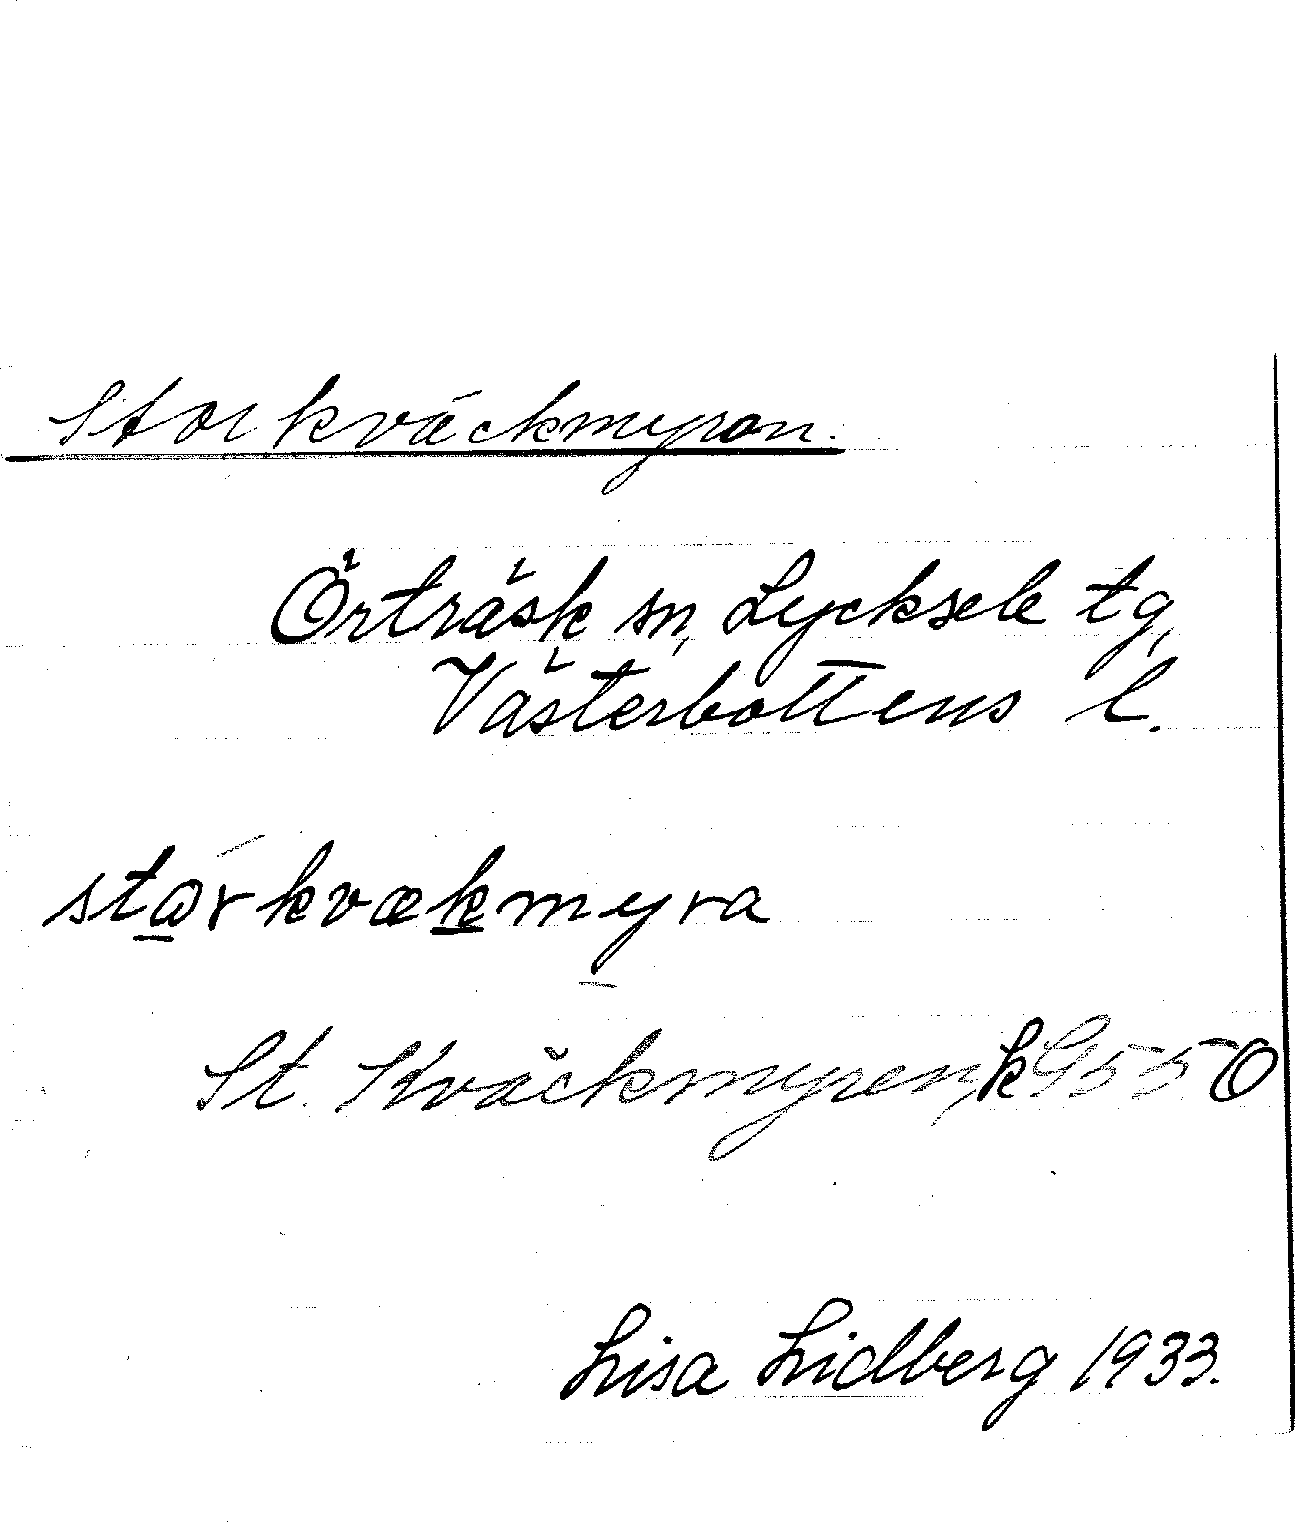 Storkväckmyran.
Örträsk sn, Lycksele tg,
Västerbottens l.
stɷrkvækmyra
St. Kväckmyren, k 9550
Lisa Lidberg 1933.